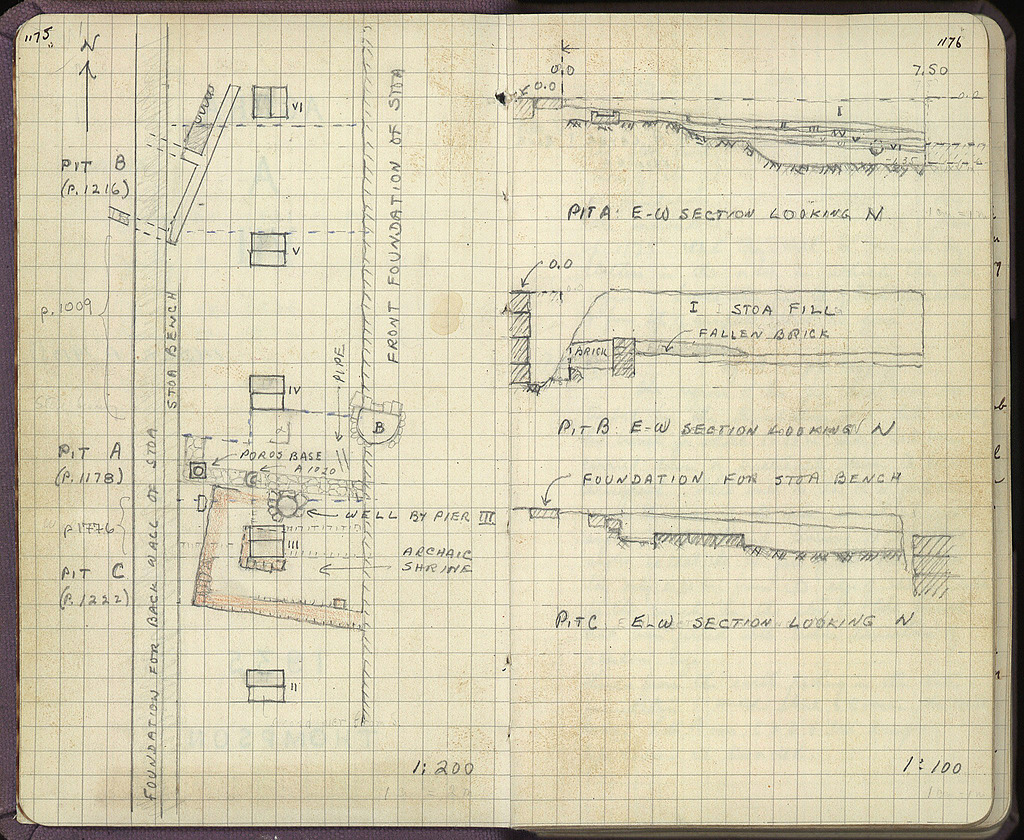 1175
N
VI
PIT B
(p. 1216)
V
p. 1009
STOA BENCH
FRONT FOUNDATION OF STOA
PIPE
IV
B
PIT A
(p. 1178)
POROS BASE
A 1020
WELL BY PIER III
p 1776
III
ARCHAIC
SHRINE
PIT C
(p. 1222)
FOUNDATION FOR BACK WALL OF STOA
II
1:200
1176
0.0
7.50
0.0
I
II
III
IV
V
VI
PIT A: E-W SECTION LOOKING N
0.0
I STOA FILL
FALLEN BRICK
BRICK
PIT B: E-W SECTION LOOKING N
FOUNDATION FOR STOA BENCH
PIT C E-W SECTION LOOKING N
1:100